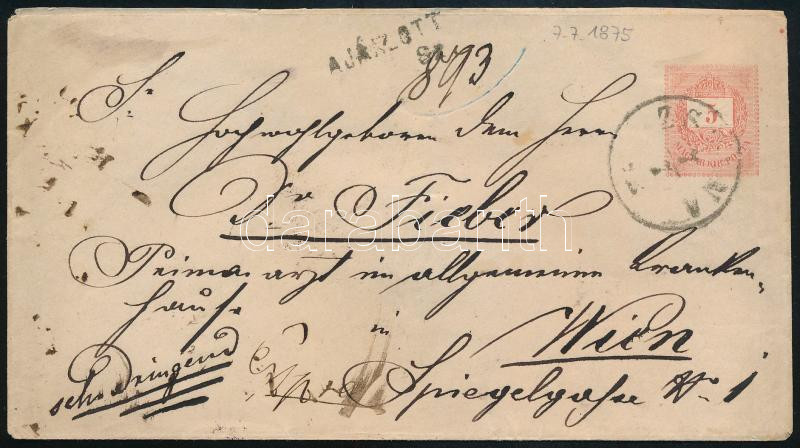 7.7.1875
AJÁNLOTT
893
Sr
Hochwohlgeboren dem Herrn
Dr Fieber
Primararzt im allgemeinen Kranken-
hause
in
Wien
sehr dringend
Spiegelgasse No. 1
5
MAGYAR KIR. POSTA
darabanth